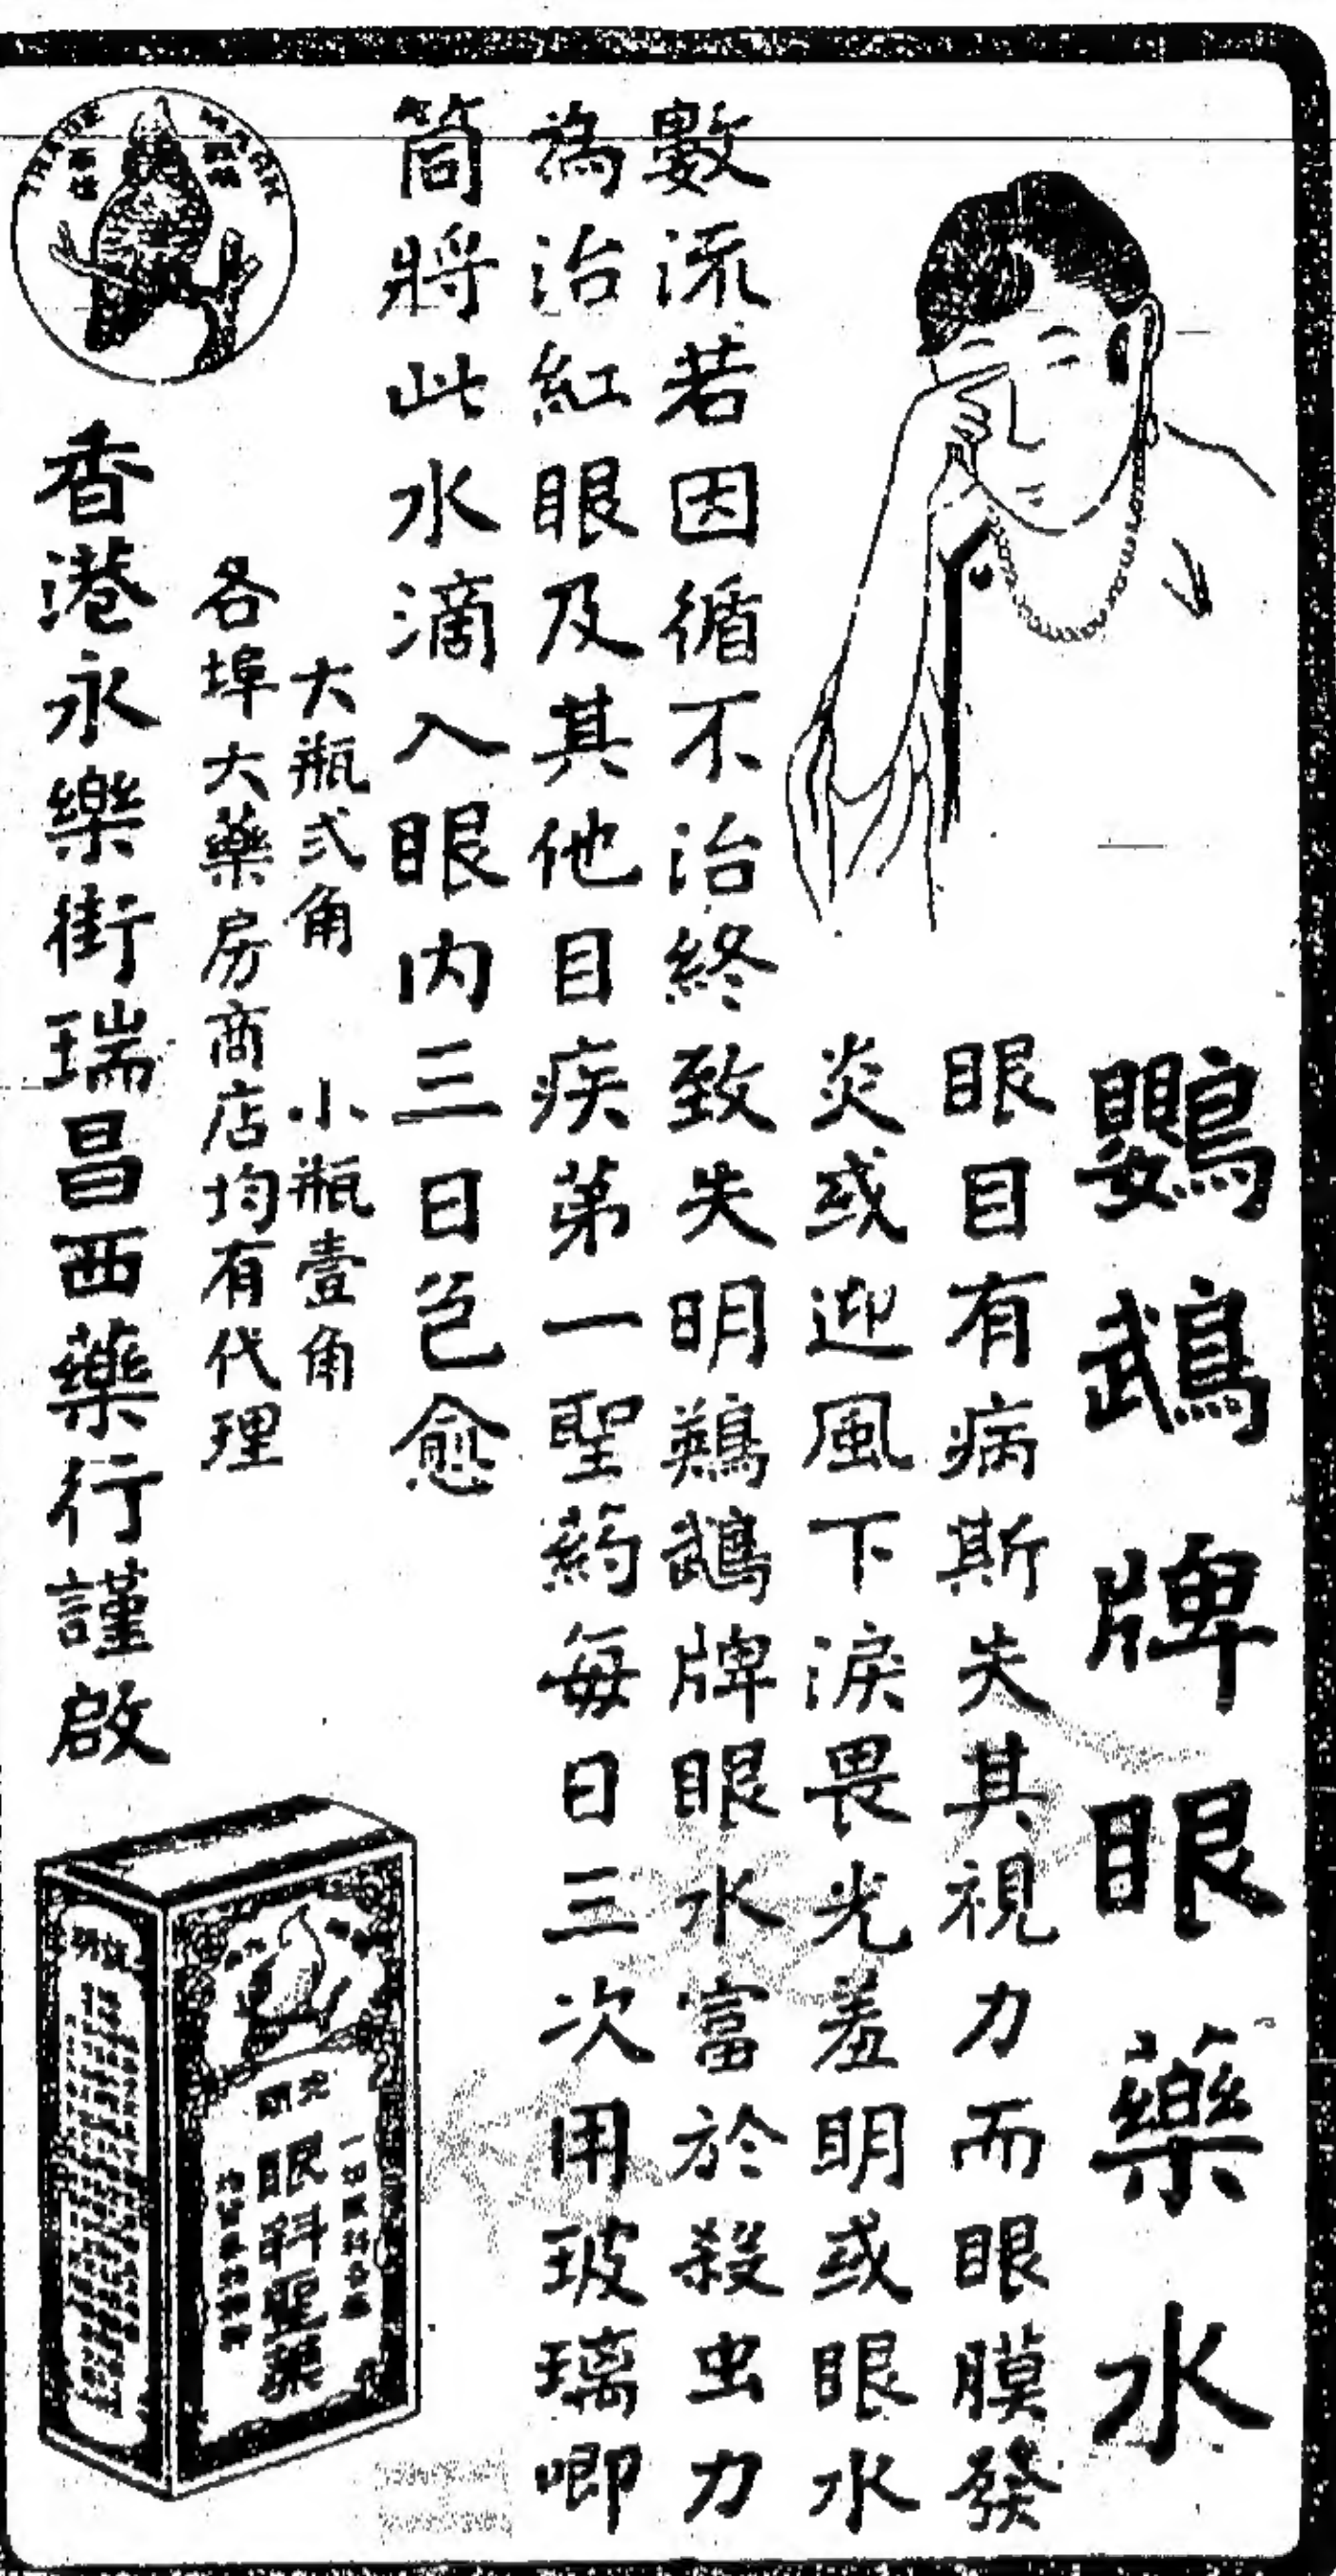 鸚鵡牌眼藥水
眼目有病斯失其視力而眼膜發
炎或迎風下淚畏光羞明或眼水
數流若因循不治終致失明鸚鵡牌眼水富於殺虫力
為治紅眼及其他目疾第一聖葯每日三次用玻璃唧
筒將此水滴入眼内三日包愈
大瓶弍角 小瓶壹角
各埠大藥房商店均有代理
TRADE MARK
香港永樂街瑞昌西藥行謹啟
眼科聖藥